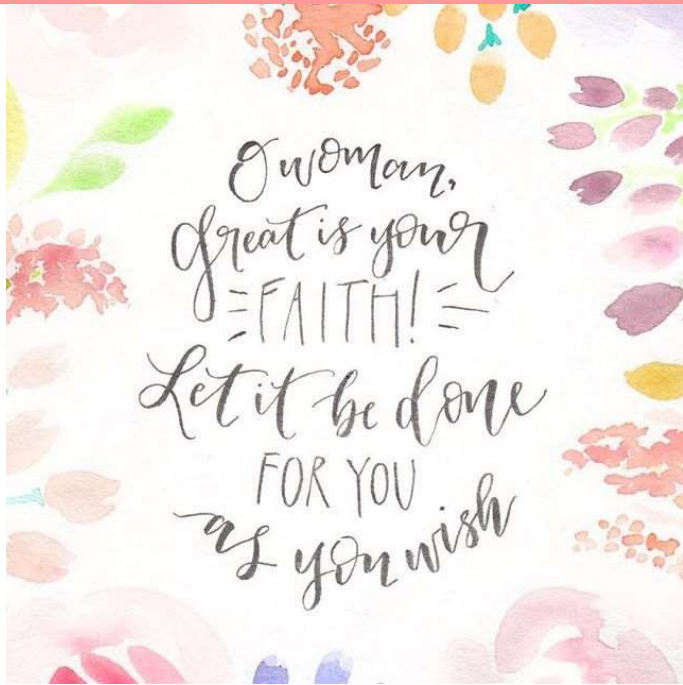 O woman,
Great is your
FAITH!
Let it be done
FOR YOU
as you wish